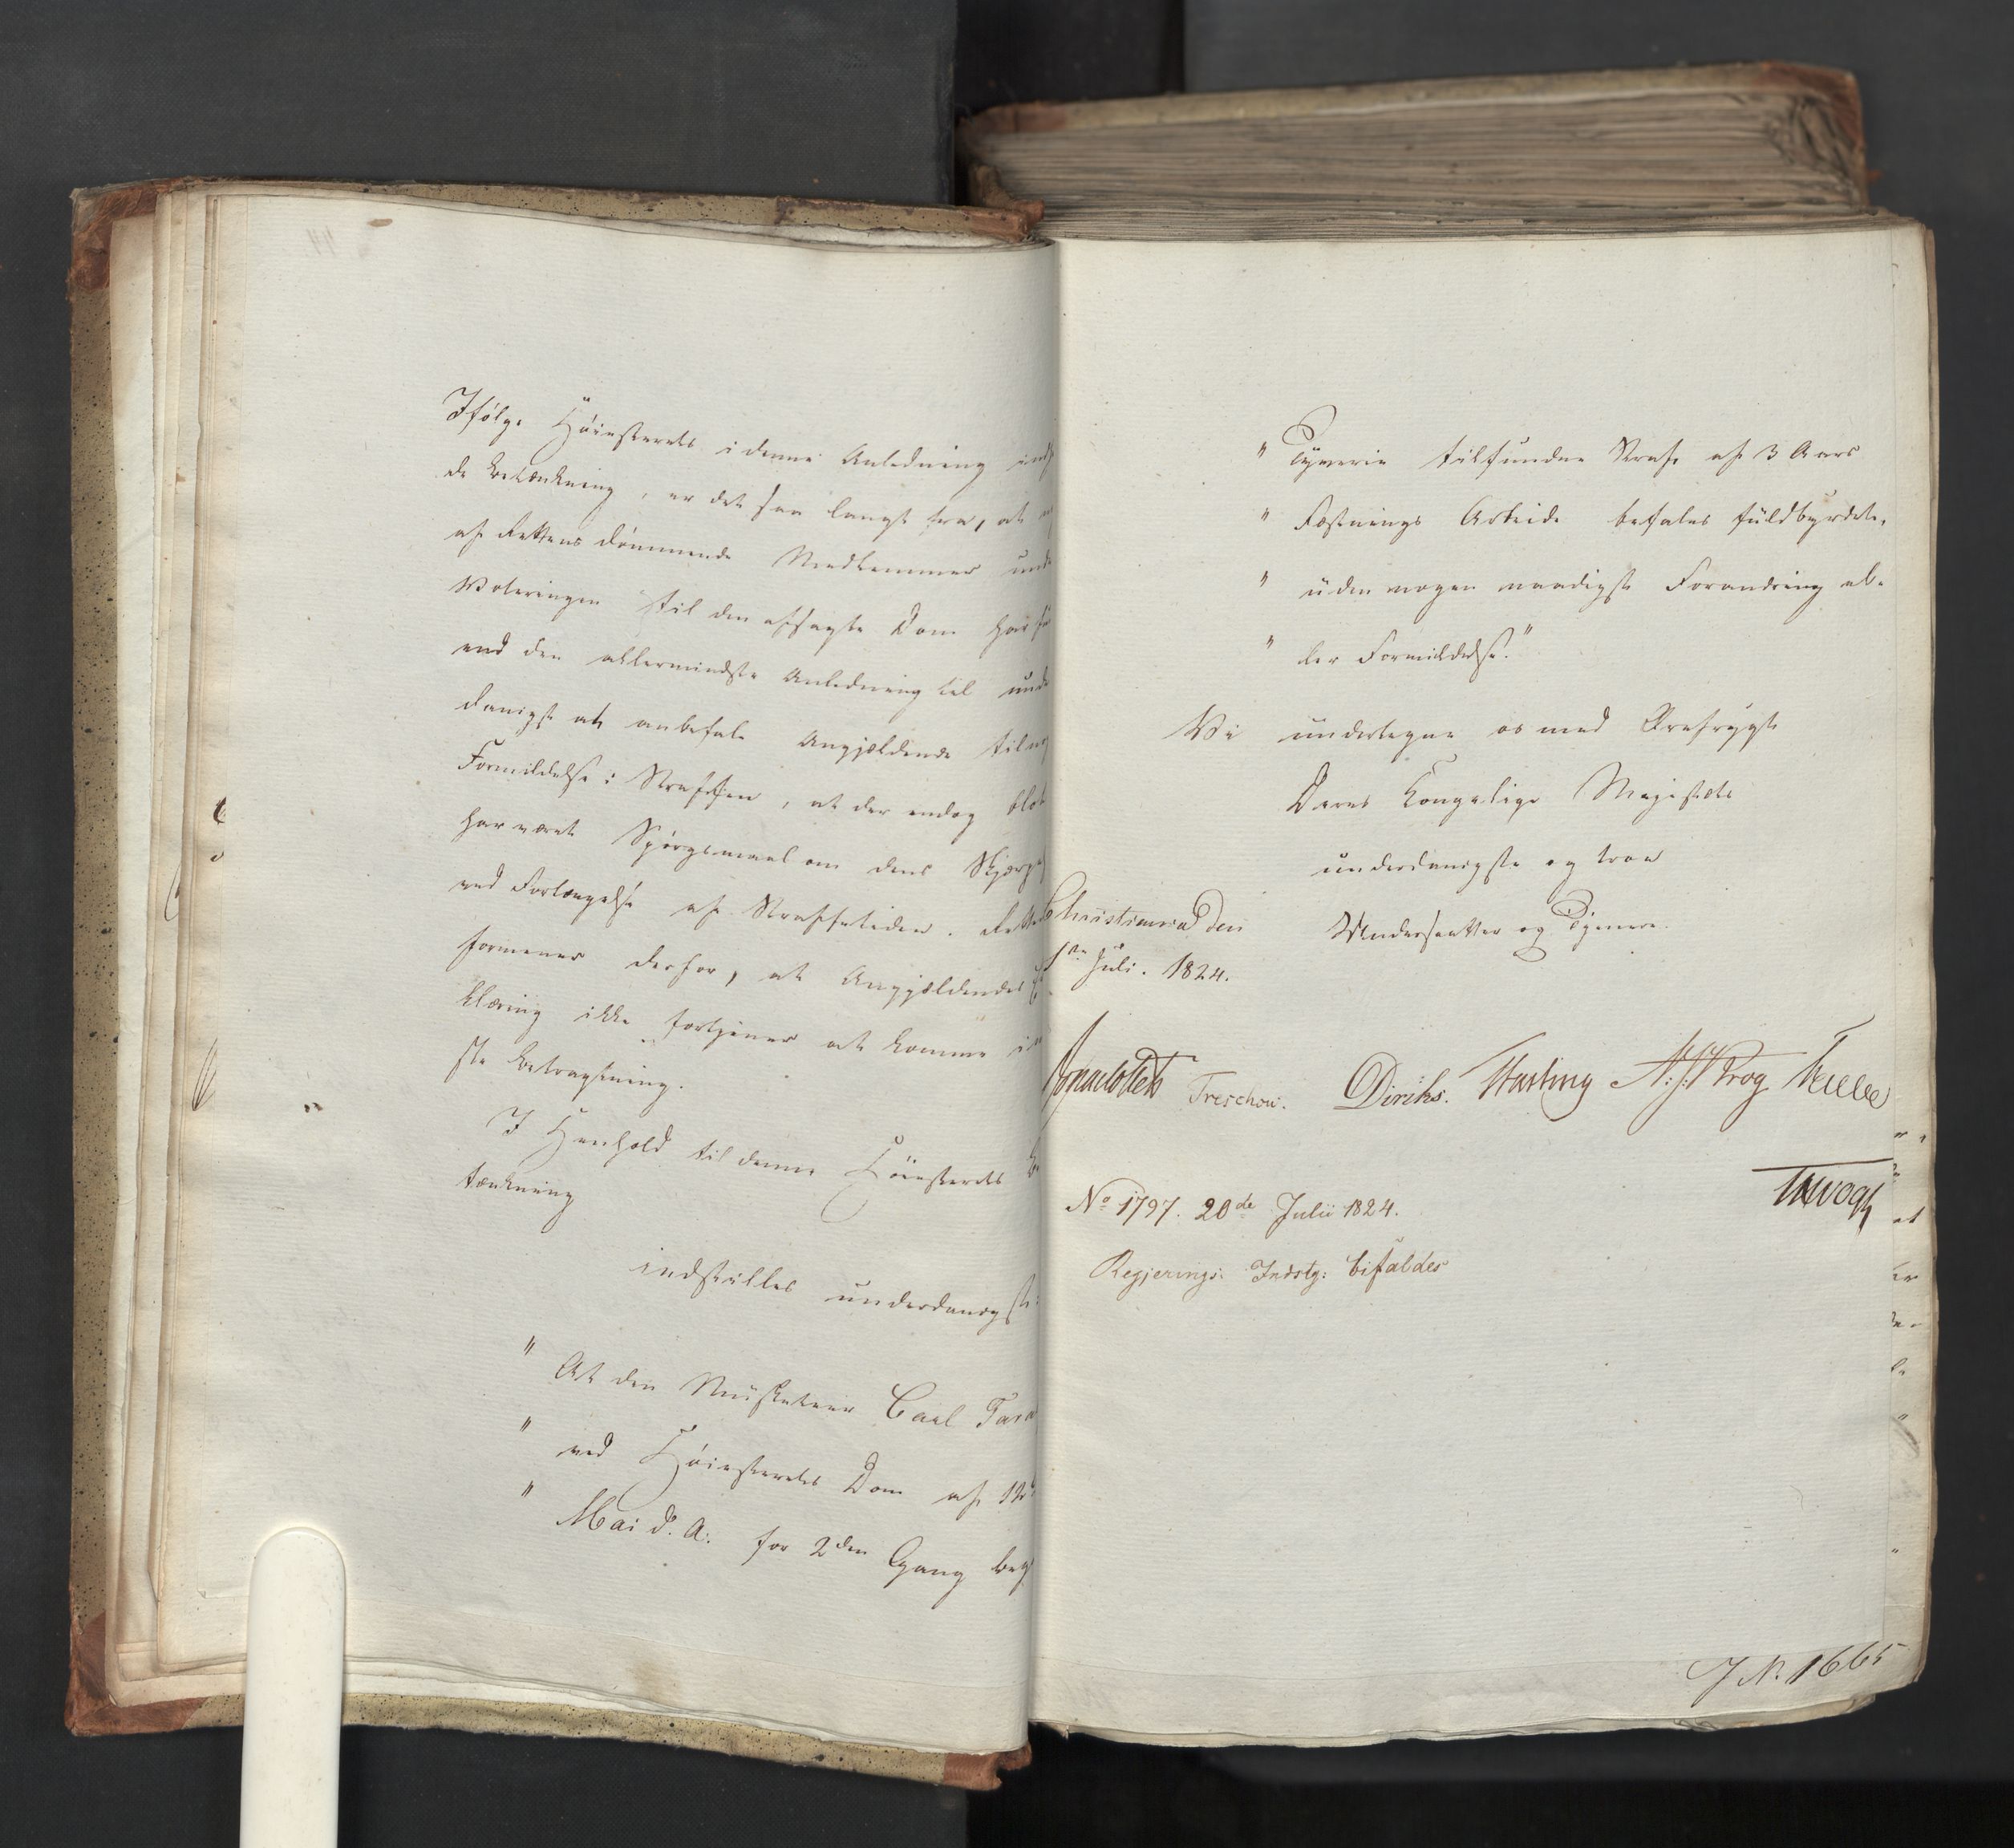 Ifølge Høiesterets i denne Anledning
de Betænkning, er det saa langt fra, at
af Rettens dømmende Medlemmer und
Voteringen til den afsagte Dom har
end den allermindste Anledning til und
danigst at anbefale Angjældende til
Formildelse i Straffen, at der endog blot
har været Spørgsmaal om dens Skjærp
ved Forlængelse af Straffetiden. Rett
formener derfor, at Angjældendes
klæring ikke fortjener at komme i
ste Betragtning.
I Henhold til denne Høiesterets Be
tænkning
indstilles underdanigst:
" At den Musketeer Carl
" ved Høiesterets Dom af
" Mai d. A. for 2den Gang beg
" Tyverie tilfundne Straf af 3 Aars
" Fæstnings Arbeide befales fuldbyrdet,
" uden nogen naadigst Forandring el-
" ler Formildelse."
Vi undertegne os med Ærefrygt
Deres Kongelige Majestæts
underdanigste og troe
Undersaatter og Tjenere.
Christiania den
1ste Juli. 1824.
Treschow. Diriks. Hartvig
No 1797. 20de Julii 1824.
Regjerings: Indstg: bifaldes
J. N. 1665